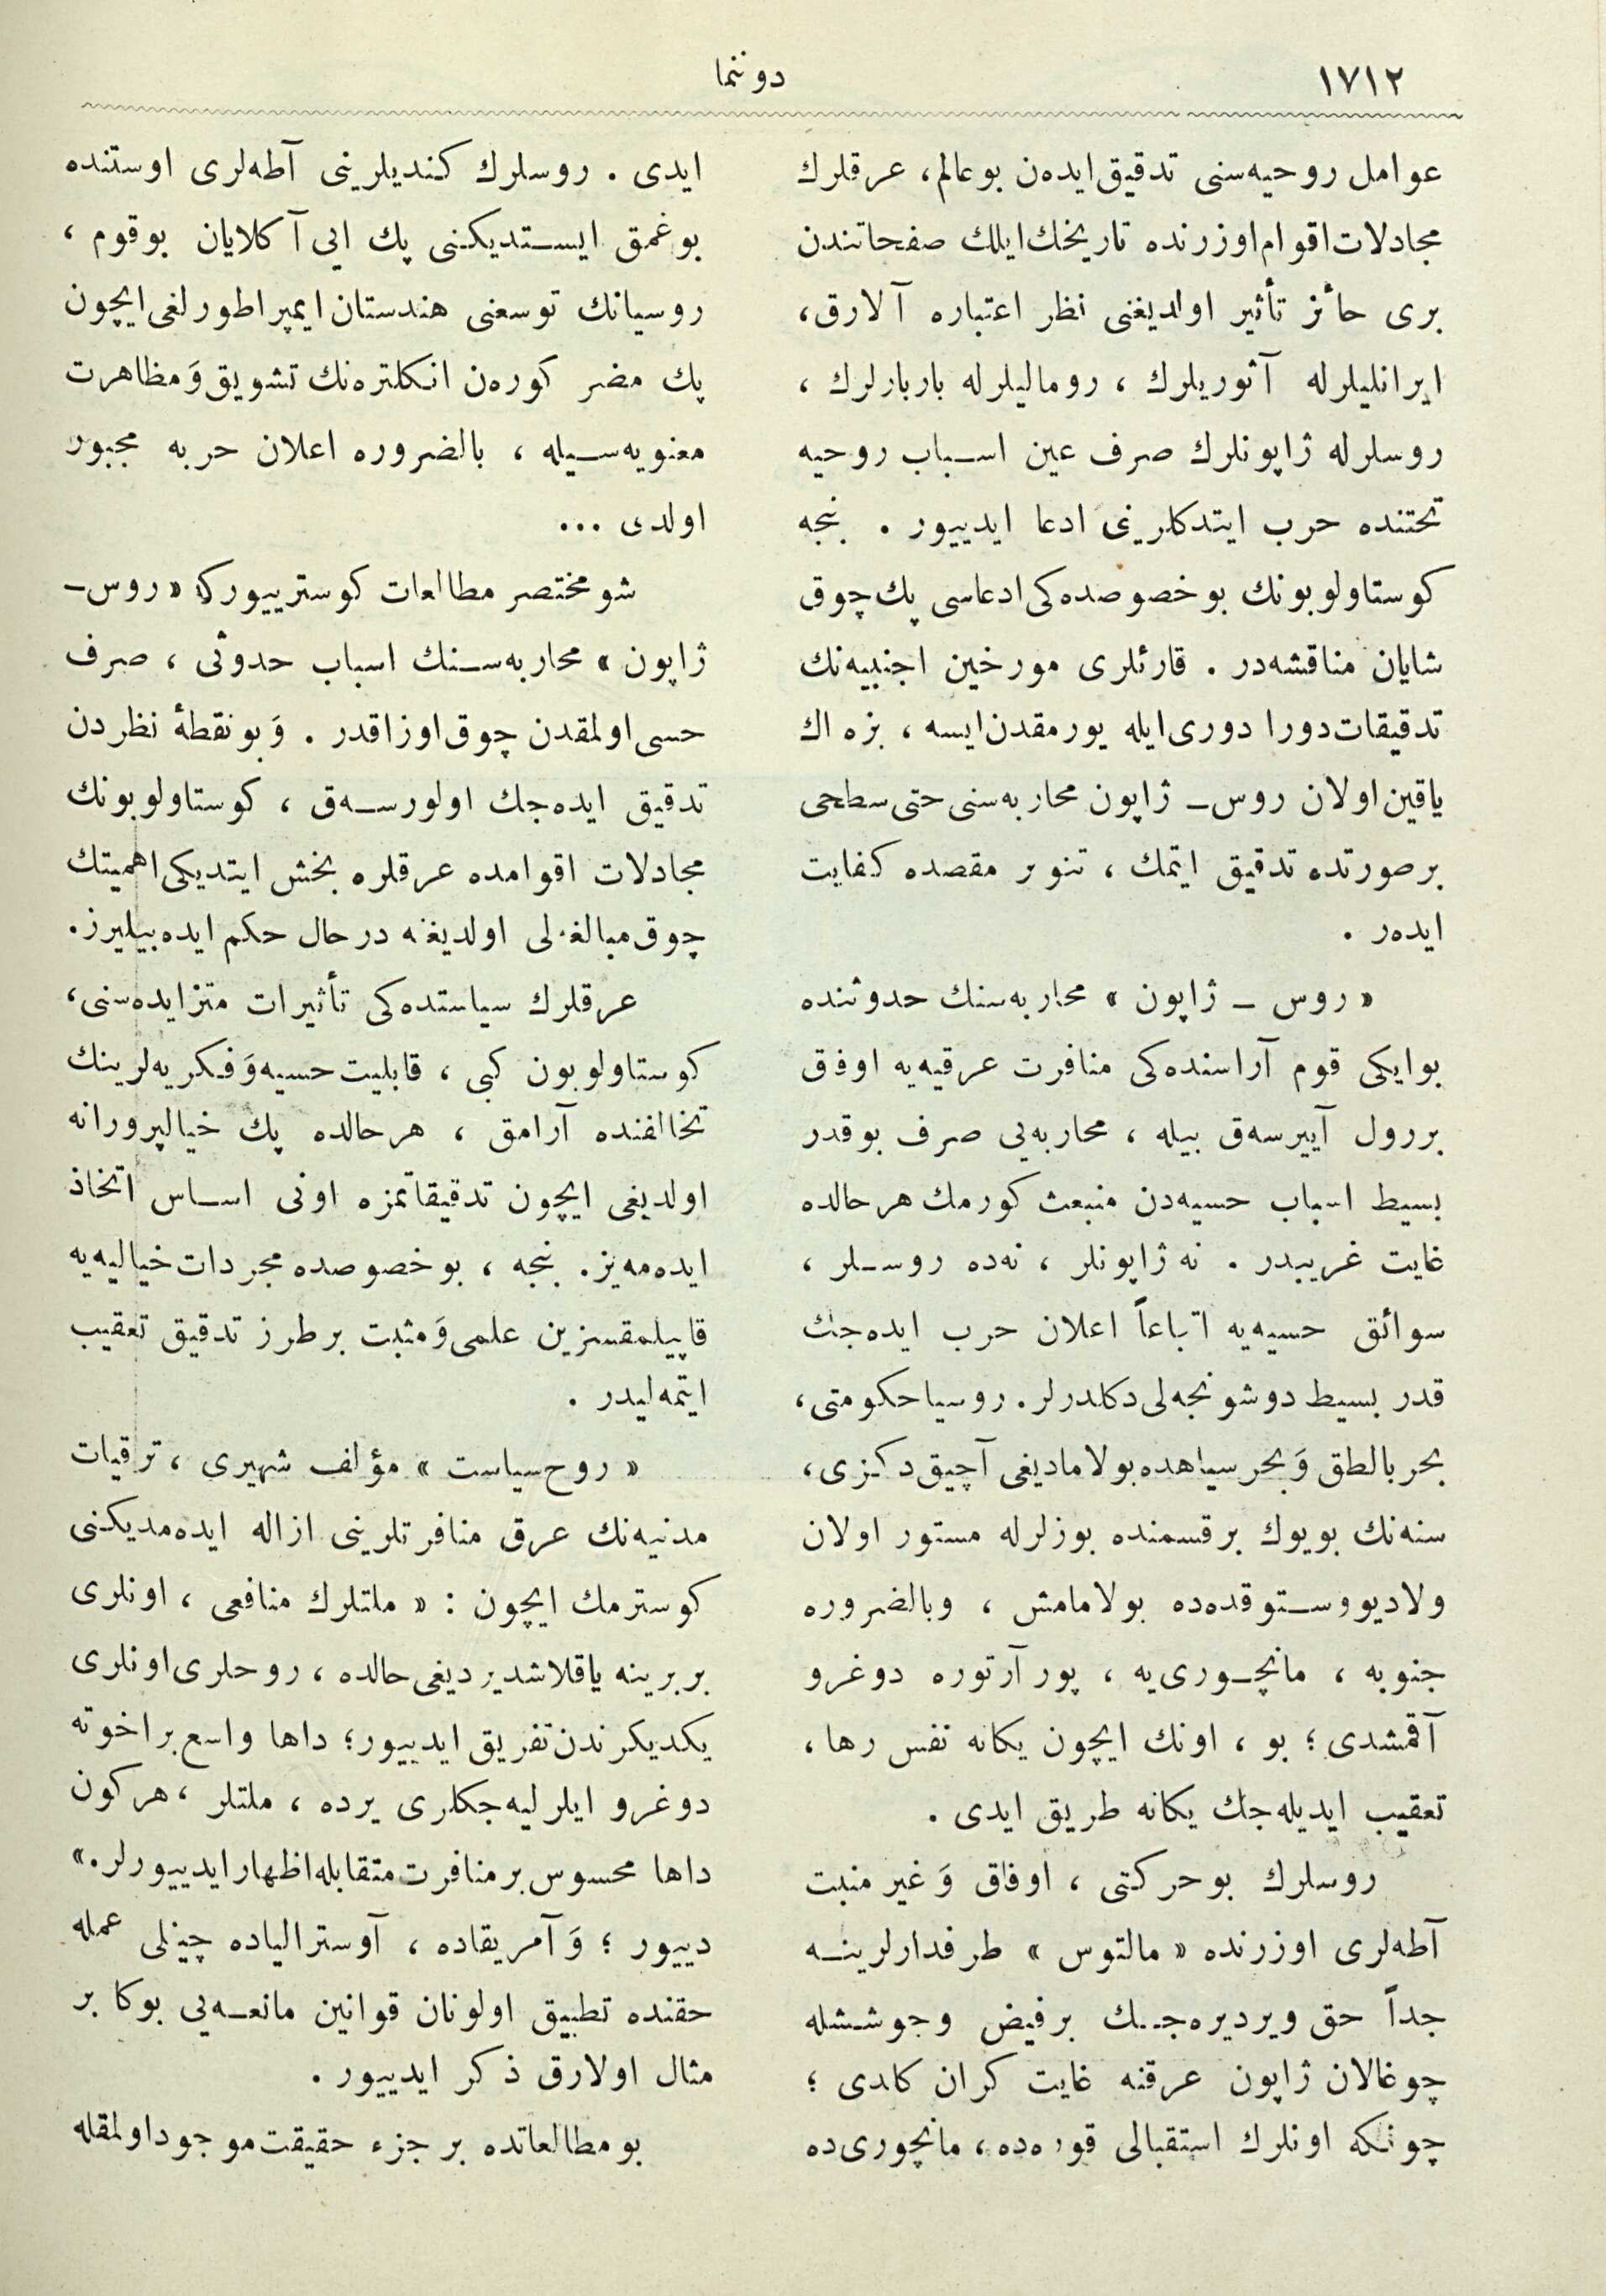 ١٧١٢
دوننما
عوامل روحیه‌سنی تدقیق ایده‌ن بو عالم، عرقلرك
مجادلات اقوام اوزرنده تاریخك ایلك صفحاتندن
بری حائز تأثیر اولدیغنی نظر اعتباره آلارق،
ایرانلیلرله آثوریلرك ، رومالیلرله باربارلرك ،
روسلرله ژاپونلرك صرف عین اسباب روحیه
تحتنده حرب ایتدكلرینی ادعا ایدییور . بنجه
كوستاولوبونك بو خصوصده‌كی ادعاسی پك چوق
شایان مناقشه‌در . قارئلری مورخین اجنبیه‌نك
تدقیقات دورا دوری ایله یورمقدن ایسه ، بزه اك
یاقین اولان روس ـ ژاپون محاربه‌سنی حتی سطحی
برصورتده تدقیق ایتمك ، تنویر مقصده كفایت
ایده‌ر .
« روس ـ ژاپون » محاربه‌سنك حدوثنده
بو ایكی قوم آراسنده‌كی منافرت عرقیه‌یه اوفق
بررول آییرسه‌ق بیله ، محاربه‌یی صرف بوقدر
بسیط اسباب حسیه‌دن منبعث كورمك هر حالده
غایت غریبدر . نه ژاپونلر ، نه‌ده روسلر ،
سوائق حسیه‌یه اتباعاً اعلان حرب ایده‌جك
قدر بسیط دوشونجه‌لی دكلدرلر . روسیا حكومتی،
بحر بالطق وَ بحر سیاهده بولامادیغی آچیق دكزی،
سنه‌نك بویوك برقسمنده بوزلرله مستور اولان
ولادیووستوقده‌ده بولامامش ، وبالضروره
جنوبه ، مانچوری‌یه ، پور آرتوره دوغرو
آقمشدی ؛ بو ، اونك ایچون یكانه نفس رها ،
تعقیب ایدیله‌جك یكانه طریق ایدی .
روسلرك بو حركتی ، اوفاق وَ غیر منبت
آطه‌لری اوزرنده « مالتوس » طرفدارلرینه
جداً حق ویردیره‌جك برفیض وجوششله
چوغالان ژاپون عرقنه غایت كران كلدی ؛
چونكه اونلرك استقبالی قوره‌ده ، مانچوری‌ده
ایدی . روسلرك كندیلرینی آطه‌لری اوستنده
بوغمق ایستدیكنی پك ایی آكلایان بو قوم ،
روسیانك توسعنی هندستان ایمپراطورلغی ایچون
پك مضر كوره‌ن انكلتره‌نك تشویق وَ مظاهرت
معنویه‌سیله ، بالضروره اعلان حربه مجبور
اولدی ...
شو مختصر مطالعات كوستریيوركه « روس ـ
ژاپون » محاربه‌سنك اسباب حدوثی ، صرف
حسی اولمقدن چوق اوزاقدر . وَ بو نقطهٔ نظردن
تدقیق ایده‌جك اولورسه‌ق ، كوستاولوبونك
مجادلات اقوامده عرقلره بخش ایتدیكی اهمیتك
چوق مبالغه‌لی اولدیغنه درحال حكم ایده‌بیلیرز.
عرقلرك سیاستده‌كی تأثیرات متزایده‌سنی،
كوستاولوبون كبی ، قابلیت حسیه وَ فكریه‌لرینك
تخالفنده آرامق ، هر حالده پك خیالپرورانه
اولدیغی ایچون تدقیقاتمزه اونی اساس اتخاذ
ایده‌مه‌یز. بنجه ، بو خصوصده مجردات خیالیه‌یه
قاپیلمقسزین علمی وَ مثبت برطرز تدقیق تعقیب
ایتمه‌لیدر .
« روح سیاست » مؤلف شهیری ، ترقیات
مدنیه‌نك عرق منافرتلرینی ازاله ایده‌مدیكنی
كوسترمك ایچون : « ملتلرك منافعی ، اونلری
بربرینه یاقلاشدیردیغی حالده ، روحلری اونلری
یكدیكرندن تفریق ایدییور؛ داها واسع بر اخوته
دوغرو ایلرلیه‌جكلری یرده ، ملتلر ، هر كون
داها محسوس بر منافرت متقابله اظهار ایدییورلر.»
دییور ؛ وَ آمریقاده ، آوسترالیاده چینلی عمله
حقنده تطبیق اولونان قوانین مانعه‌یی بوكا بر
مثال اولارق ذكر ایدییور .
بو مطالعاتده بر جزء حقیقت موجود اولمقله